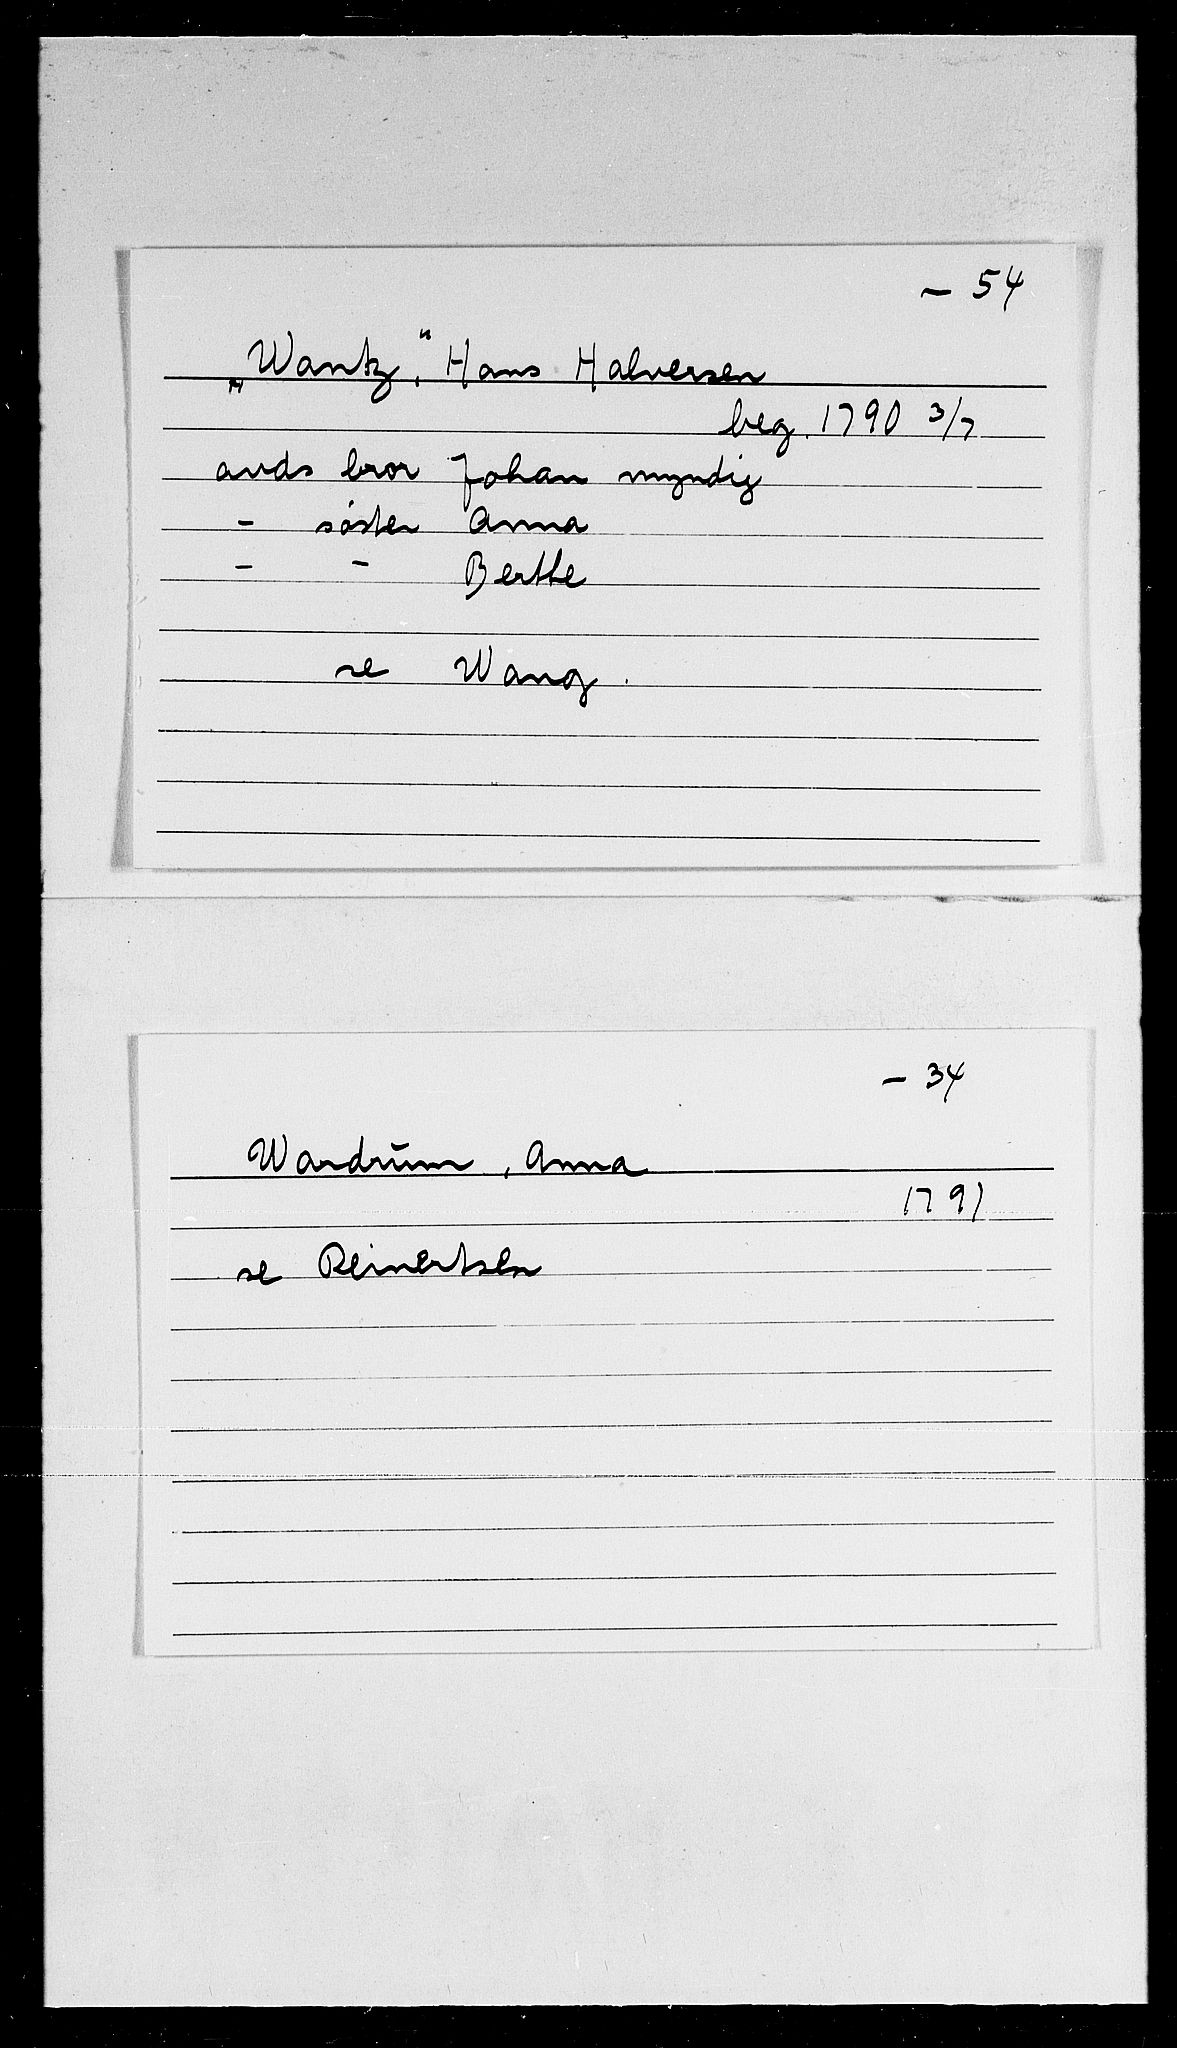 - 54
„Wantz", Hans Halversen
beg. 1790 3/7
avds bror Johan myndig
- søster Anna
- - Berthe
se Wang.
- 34
Wardrŭm, Anna
1791
se Reinertsen